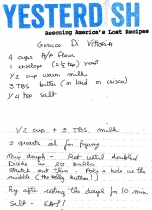 YESTERD SH
Rescuing America's Lost Recipes
Gnocco Di Vittoria
4 cups A/P flour
1 envelope (2 1/4 tsp) yeast
1/2 cup warm milk
3 TBS butter (or lard or crisco)
1/4 tsp salt
1/2 cup + 3 TBS milk
2 quarts oil for frying
Mix dough - Rest until doubled
Divide in 20 balls
Stretch out thin - Poke a hole in the
middle (the belly button!)
Fry after resting the dough for 10 min.
Salt - EAT!